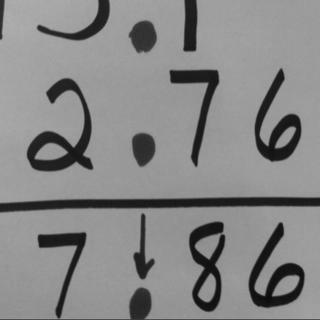 2.76
7.86